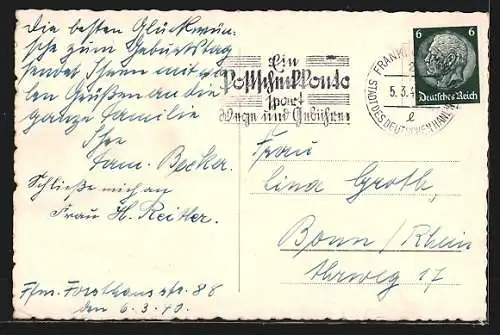 Die besten Glückwün-
sche zum Geburtstag
sendet Ihnen mit vie-
len Grüßen an die
ganze Familie
Ihre
Fam. Becker.
Schließe mich an
Frau H. Reitler.
Ffm. Forsthausstr. 88
den 6.3.40.
Ein
Postscheckkonto
spart
Wege und Gebühren
FRANKF
5.3.4
STADT DES DEUTSCHEN HANDW
e
6 6
Deutsches Reich
Frau
Lina Groth,
Bonn/Rhein
Ahrweg 17